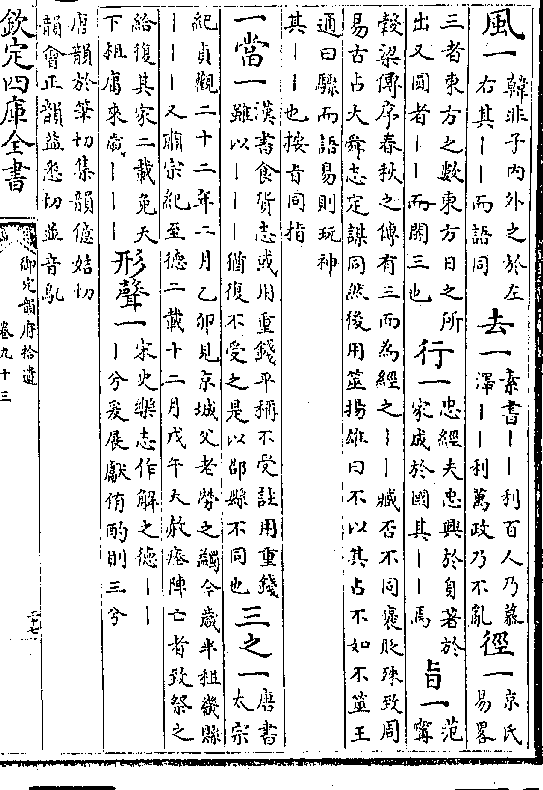 風一韓非子内外之於左右其丨丨而語同去一素書丨丨利百人乃慕澤丨丨利萬政乃不亂徑一京氏易畧
三者東方之數東方日之所出又圓者丨丨而開三也行一忠經夫忠興於身著於家成於國其丨丨焉旨一范甯
穀梁傳序春秋之傳有三而為經之丨丨臧否不同褒貶殊致周
易古占大舜志定謀同然後用筮揚雄曰不以其占不如不筮王
通曰驟而語易則玩神
其丨丨也按旨同指
一當一漢書食貨志或用重錢平稱不受註用重錢雖以丨丨丨猶復不受之是以郡縣不同也三之一唐書太宗
紀貞觀二十二年二月乙卯見京城父老勞之蠲今歲半租畿縣
丨丨丨又肅宗紀至德二載十二月戊午大赦瘞陣亡者致祭之
給復其家二載免天下租庸來歲丨丨丨形聲一宋史樂志作解之德丨丨丨兮爰展獻侑酌則三兮
唐韻於筆切集韻億姞切
韻會正韻益悉切並音臯
欽定四庫全書
御定韻府拾遺
卷九十三